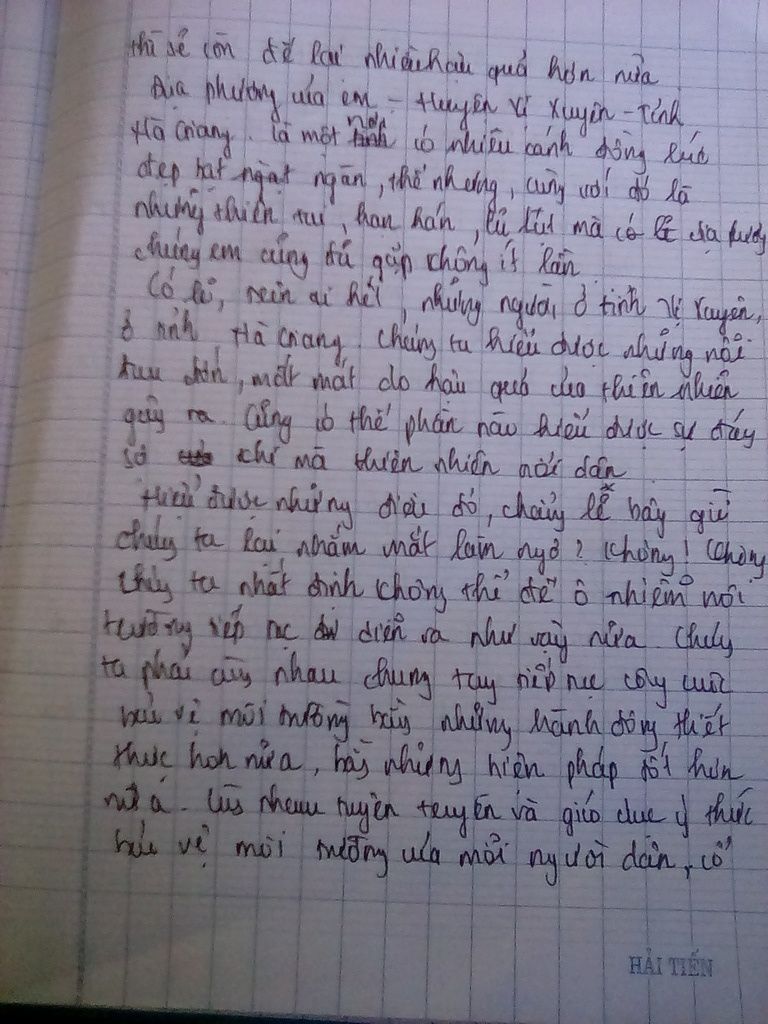 thì sẽ còn để lại nhiều hậu quả hơn nữa
Địa phương của em - Huyện Vị Xuyên - Tỉnh
Hà Giang. Là một nơi có nhiều cánh đồng lúa
đẹp bát ngát ngàn, thế nhưng, cùng với đó là
những thiên tai, hạn hán, lũ lụt mà có lẽ địa phương
chúng em cũng đã gặp không ít lần
Có lẽ, hơn ai hết, những người ở tỉnh Vị Xuyên,
ở tỉnh Hà Giang. Chúng ta hiểu được những nỗi
đau đớn, mất mát do hậu quả của thiên nhiên
gây ra. Cũng có thể phần nào hiểu được sự đáy
sợ chỉ mà thiên nhiên nổi dân
Hiểu được những điều đó, chẳng lẽ bây giờ
chúng ta lại nhắm mắt làm ngơ? Không! Không
chúng ta nhất định không thể để ô nhiễm môi
trường tiếp tục diễn ra như vậy nữa. Chúng
ta phải cùng nhau chung tay tiếp tục công cuộc
bảo vệ môi trường bằng những hành động thiết
thực hơn nữa, bằng những biện pháp tốt hơn
nữa. Cùng nhau tuyên truyền và giáo dục ý thức
bảo vệ môi trường của mỗi người dân, cố
HẢI TIẾN